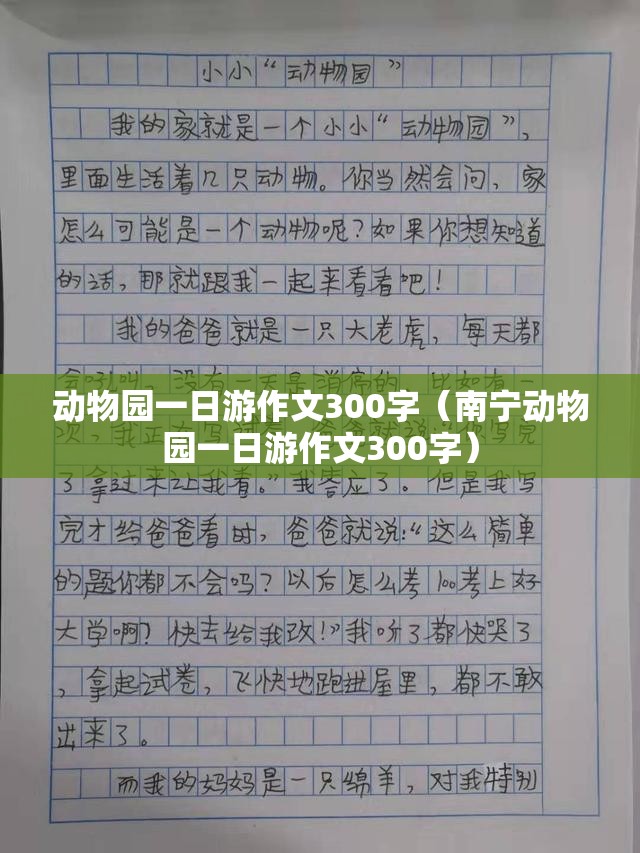 小小“动物园”
我的家就是一个小小“动物园”,
里面生活着几只动物。你当然会问，家
怎么可能是一个动物呢?如果你想知道
的话,那就跟我一起来看看吧!
我的爸爸就是一只大老虎，每天都
会吼叫，没有一天是消停的。比如有一
动物园一日游作文300字（南宁动物
园一日游作文300字）
了拿过来让我看。”我答应了。但是我写
完才给爸爸看时，爸爸就说:“这么简单
的题你都不会吗?以后怎么考100考上好
大学啊?快去给我改!”我听了都快哭了
，拿起试卷，飞快地跑进屋里，都不敢
出来了。
而我的妈妈是一只绵羊，对我特别